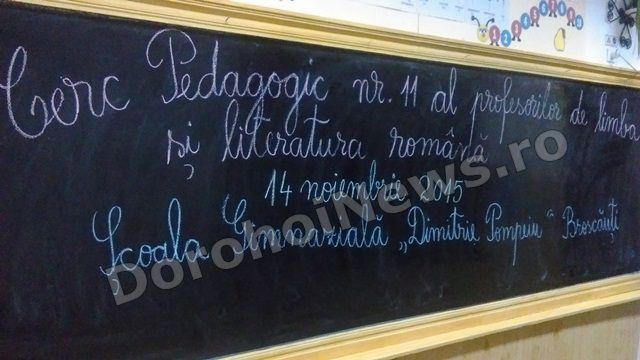 Cerc Pedagogic nr. 11 al profesorilor de limba
și literatura română
14 noiembrie 2015
Școala Gimnazială „Dimitrie Pompeiu" Broscăuți
DorohoiNews.ro